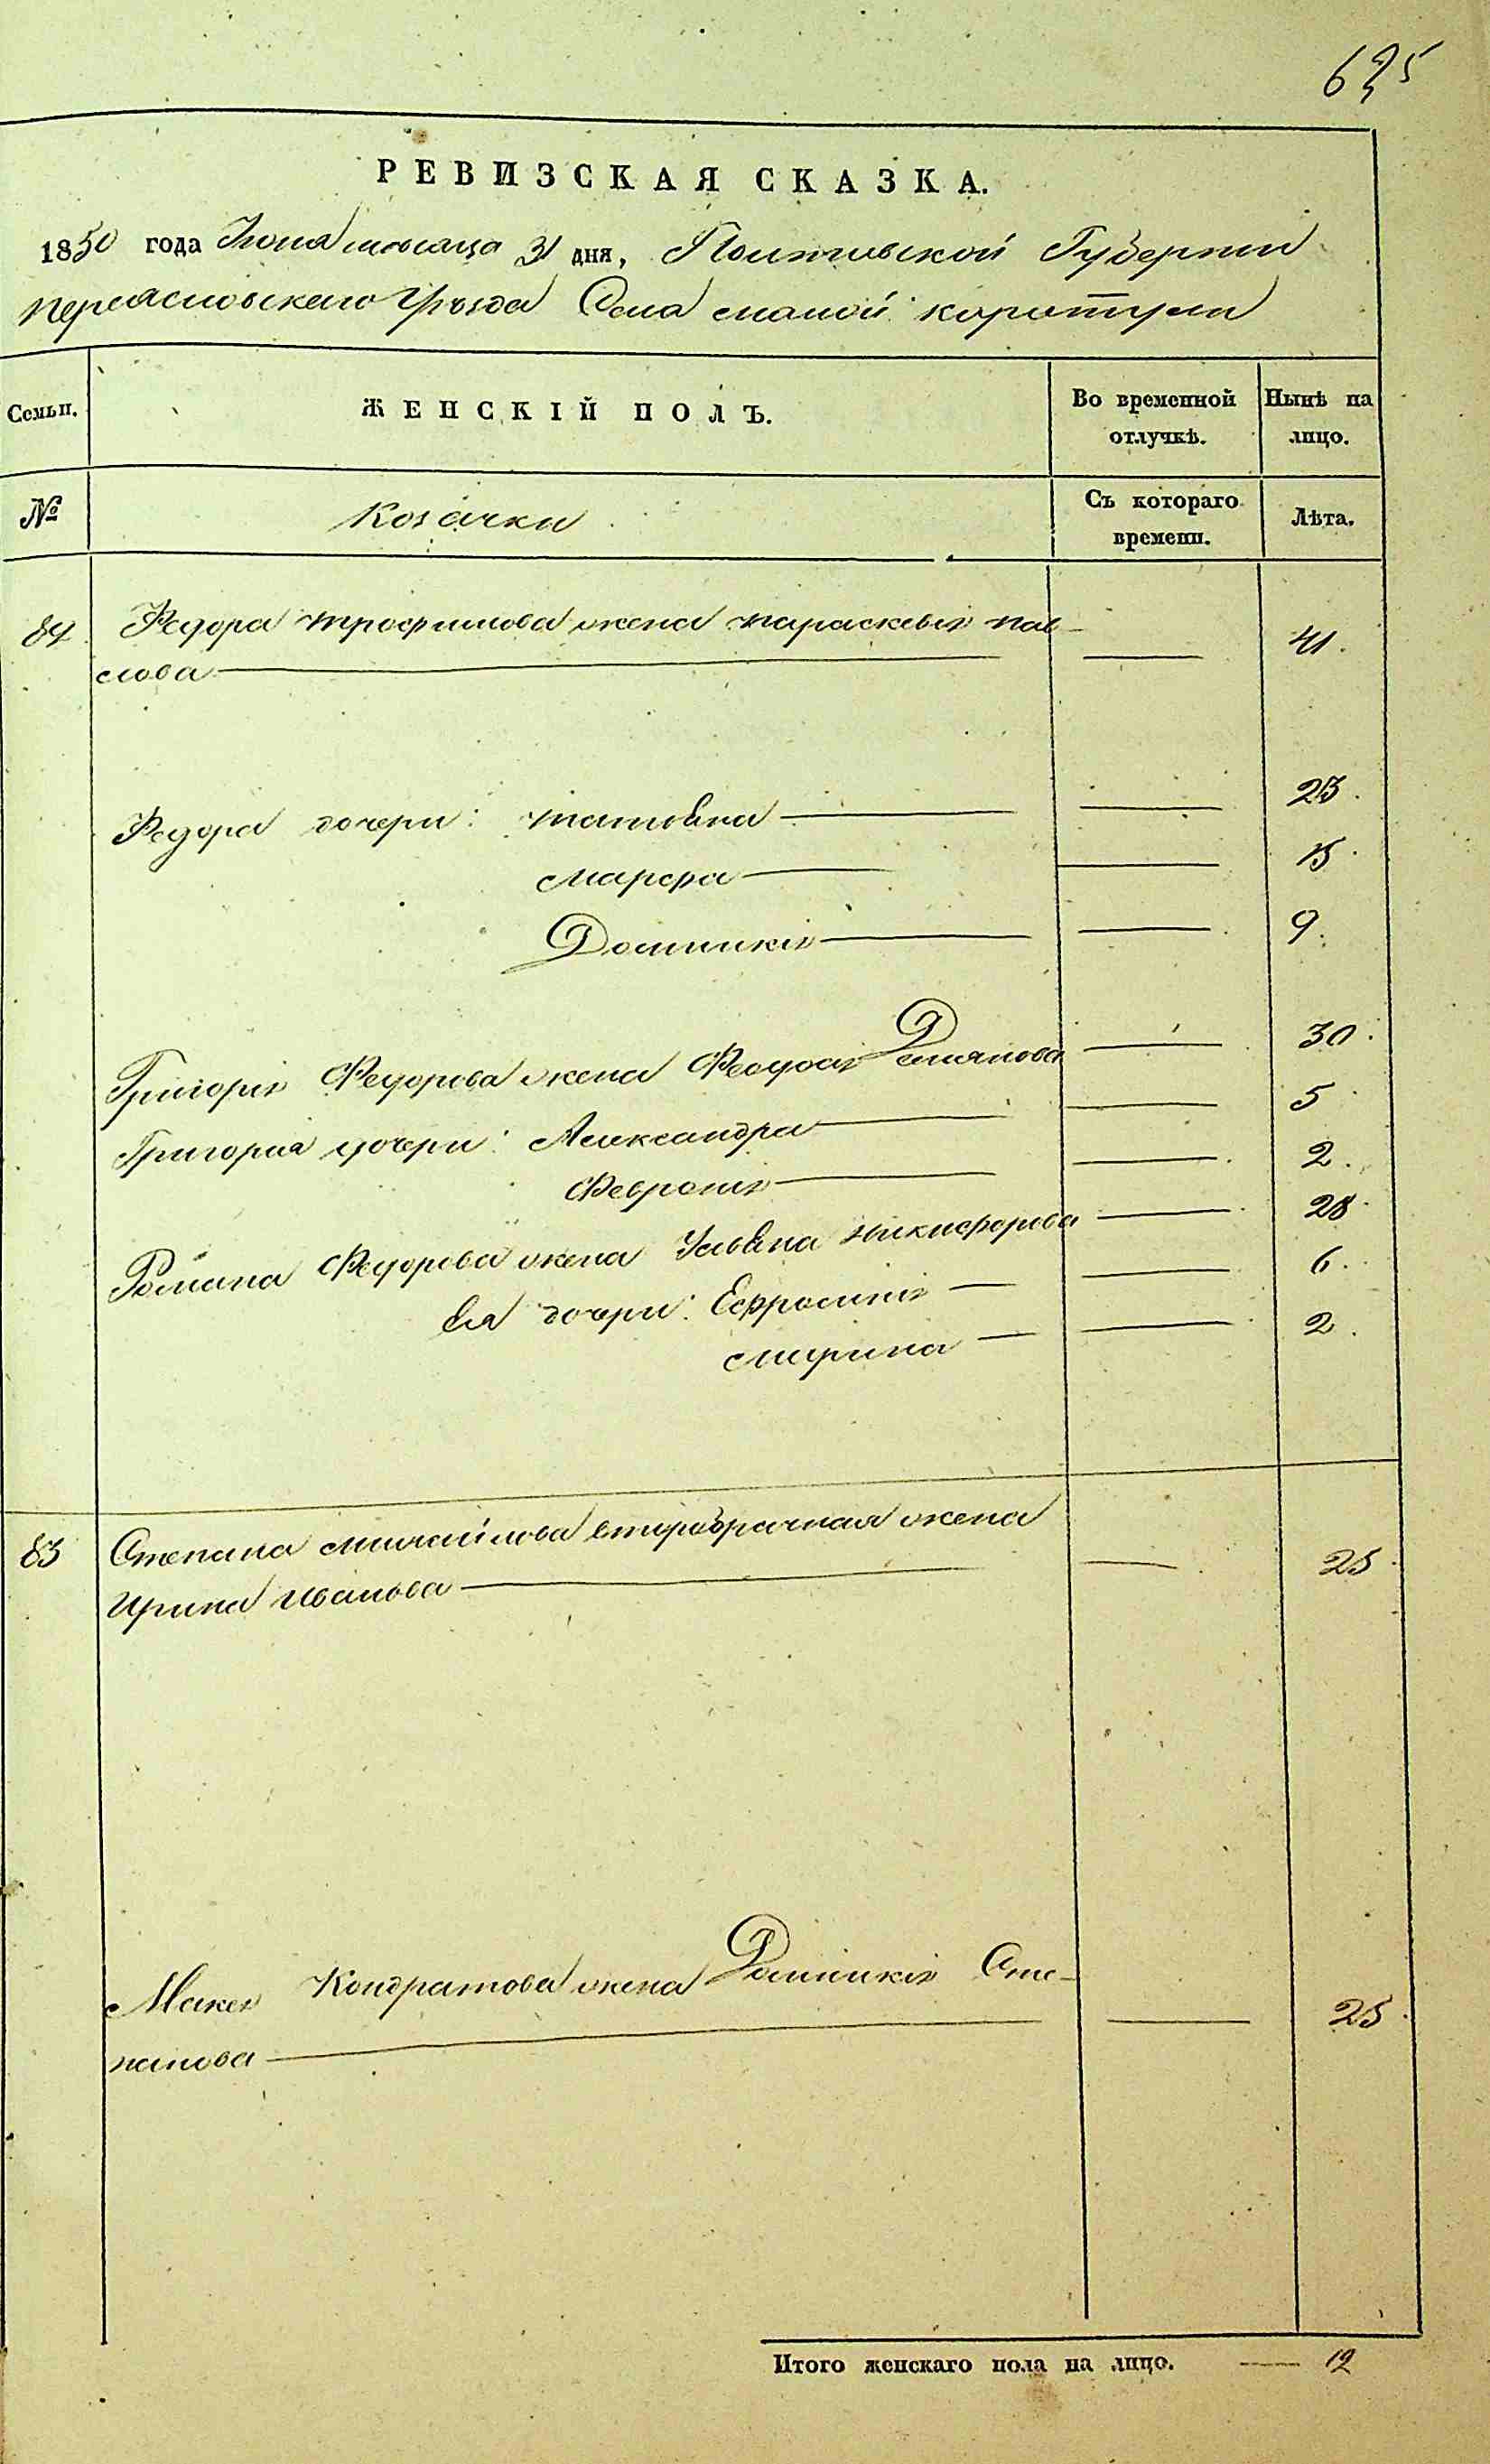 625
РЕВИЗСКАЯ СКАЗКА.
1850 года Іюля мѣсяца 31 дня, Полтавской Губерніи
Переясловского Уѣзда Села малой каратули
Семьи. ЖЕНСКІЙ ПОЛЪ. Во временной отлучкѣ. Нынѣ на лицо.
№ Козачки Съ котораго времени. Лѣта.
84 Федора трофимова жена параскевія пав-
лова 41.
Федора дочери: татьяна 23.
марфа 15.
Домникія 9.
Григорія Федорова жена Феодосія Демянова 30.
Григорія дочери: Александра 5
Феvронія 2.
Романа Федорова жена Ульяна никифорова 28.
Ея дочери: Ефросинія 6.
марина 2.
85 Степана михайлова второбрачная жена
Ирина иванова 25.
Мокея Кондратова жена Домникія Сте-
панова 25.
Итого женскаго пола на лицо. 12